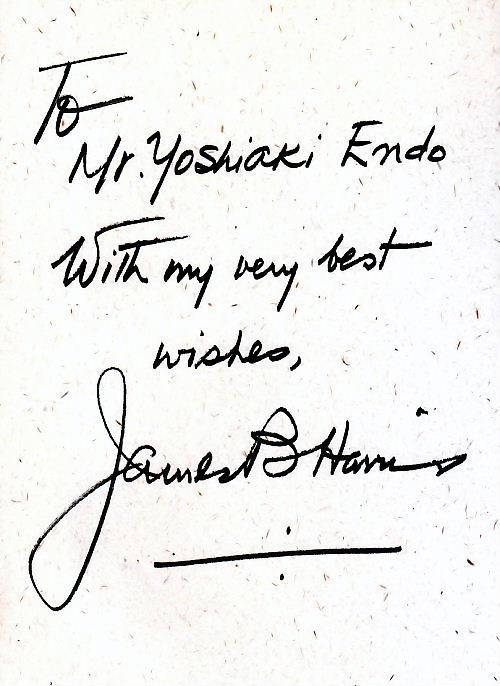 To
Mr. Yoshiaki Endo
With my very best
wishes,
James B Harris